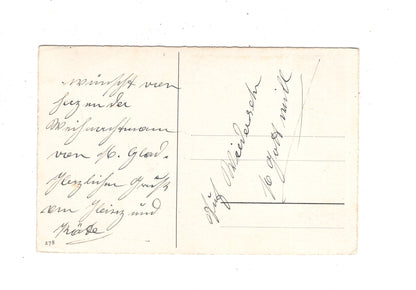 wünscht von
Herzen der
Weihnachtsmann
von M. Glad-
Herzlichen Gruß
an Heinz und
Käthe
Auf Wiedersehn
so Gott will